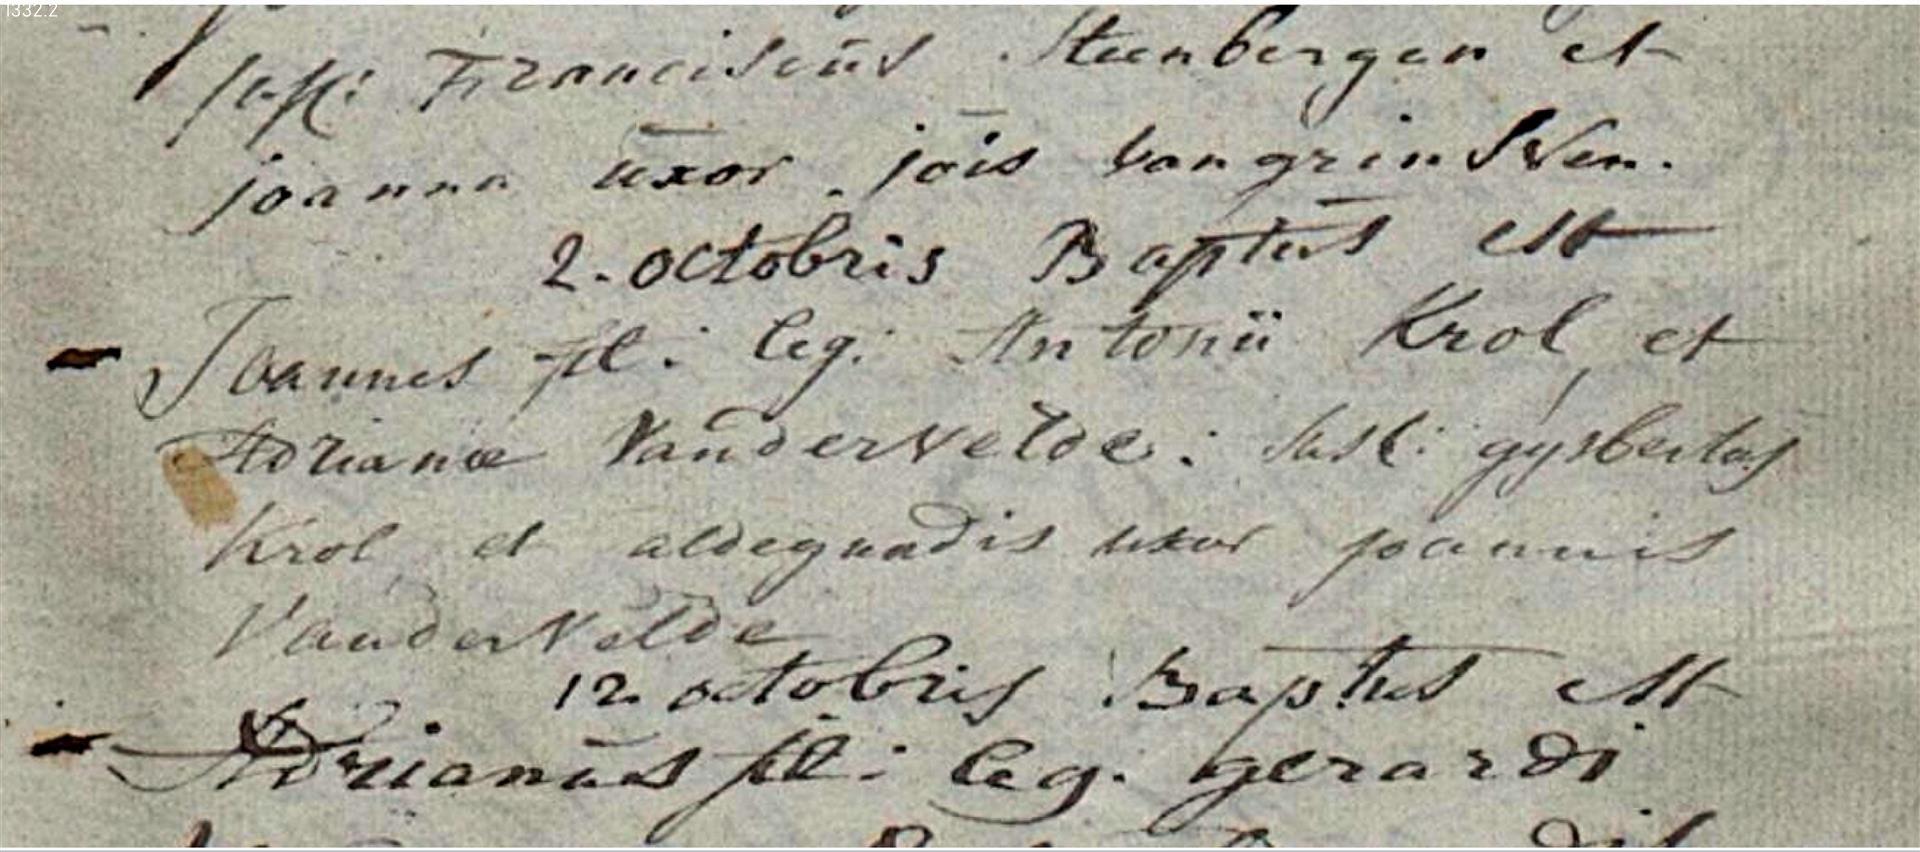 1332.2
sus: Franciscus Steenbergen et
joanna uxor jois van grinsven.
2. octobris Baptus est
Joannes fil: leg: Antonii Krol et
Adrianæ Vandervelde: sus: gysbertus
Krol et aldegundis uxor joannis
Vandervelde
12 octobris Baptus est
Adrianus fil: leg. gerardi